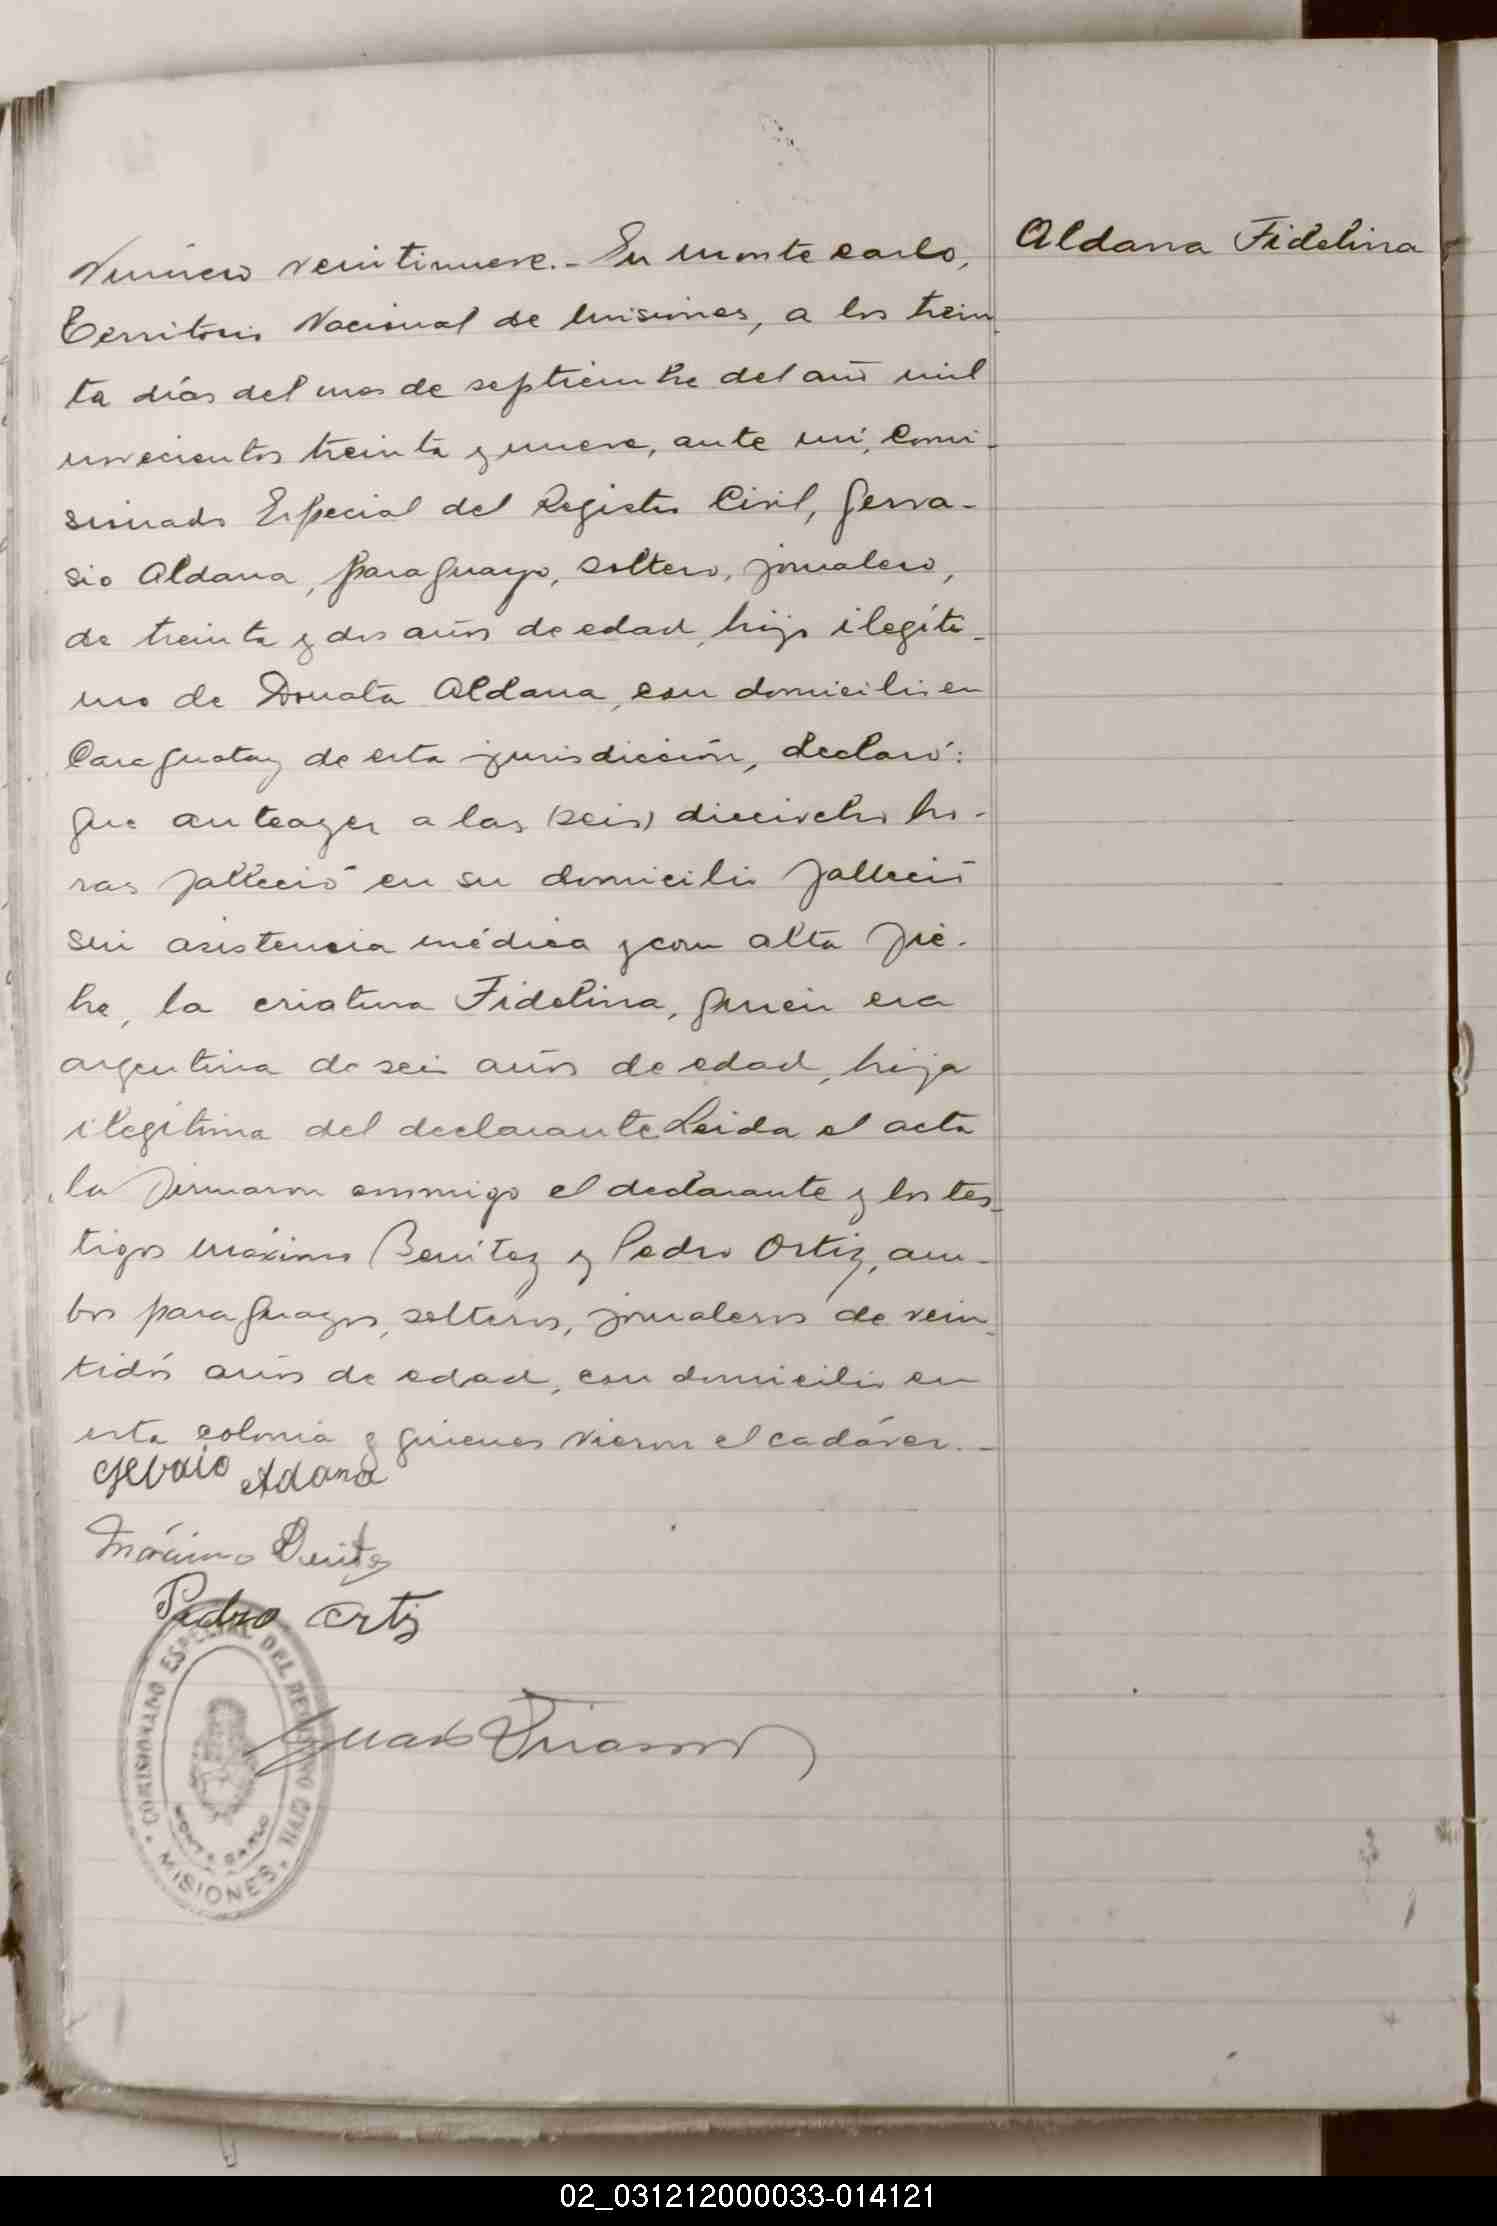 Número veintinueve.- En Monte Carlo,
Territorio Nacional de Misiones, a los trein-
ta días del mes de septiembre del año mil
novecientos treinta y nueve, ante mi, Comi-
sionado Especial del Registro Civil, Gerva-
sio Aldana, paraguayo, soltero, jornalero,
de treinta y dos años de edad, hijo ilegíti-
mo de Donata Aldana, con domicilio en
Caraguatay de esta jurisdicción, declaró:
Que anteayer a las (seis) dieciocho ho-
ras falleció en su domicilio falleció
sin asistencia médica y con alta fie-
bre, la criatura Fidelina, quien era
argentina de seis años de edad, hija
ilegítima del declarante Leida el acta
la firmaron conmigo el declarante y los tes-
tigos Máximo Benítez y Pedro Ortiz, am-
bos paraguayos, solteros, jornaleros de vein-
tidós años de edad, con domicilio en
esta colonia y quienes vieron el cadáver.-
Aldana Fidelina
Gervaio Adana
Máximo Benitez
Pedro Ortiz
COMISIONADO ESPECIAL DEL REGISTRO CIVIL
MONTE CARLO
MISIONES
02_031212000033-014121